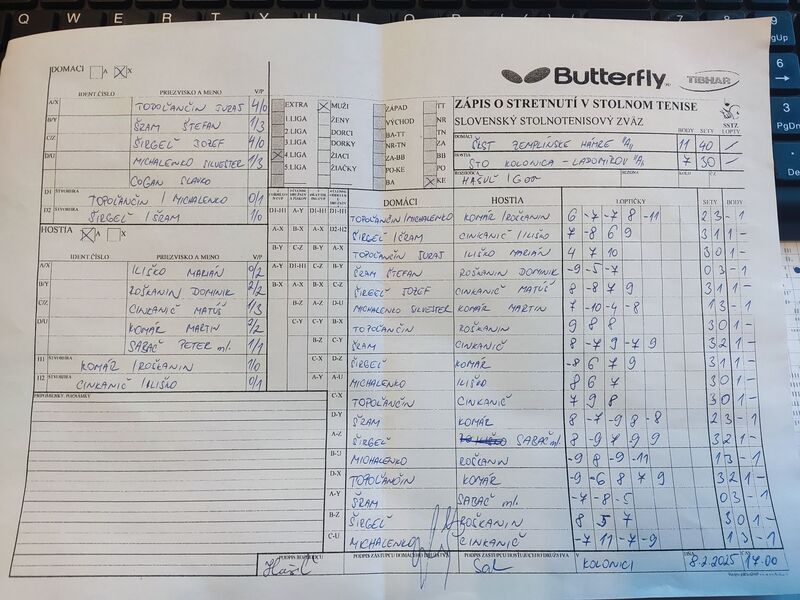 Q W E R T Z U I O P 7 8 9
DOMÁCI A X
Butterfly TIBHAR
IDENT ČÍSLO PRIEZVISKO A MENO V/P
A/X TOPOĽANČIN JURAJ 4/0
B/Y ŠRAM ŠTEFAN 1/3
C/Z ŠIRGEĽ JOZEF 4/0
D/U MICHALENKO SILVESTER 1/3
COGAN SLAVKO
D1 ŠTVORHRA TOPOĽANČIN / MICHALENKO 0/1
D2 ŠTVORHRA ŠIRGEĽ / ŠRAM 1/0
EXTRA MUŽI ZÁPAD TT
1 LIGA ŽENY VÝCHOD NR
2 LIGA DORCI BA-TT TN
3 LIGA DORKY NR-TN ZA
4 LIGA ŽIACI ZA-BB BB
5 LIGA ŽIAČKY PO-KE PO
BA KE
ZÁPIS O STRETNUTÍ V STOLNOM TENISE
SLOVENSKÝ STOLNOTENISOVÝ ZVÄZ SSTZ
DOMÁCI ŠKST ZEMPLÍNSKE HÁMRE "A" BODY 11 SETY 40 LOPTY /
HOSTIA STO KOLONICA - LADOMÍROV "A" 7 30 /
ROZHODCA HAŠUĽ IGOR
HOSTIA A X
IDENT ČÍSLO PRIEZVISKO A MENO V/P
A/X ILIŠKO MARIÁN 0/2
B/Y ROŠKANIN DOMINIK 2/2
C/Z CINKANIČ MATÚŠ 1/3
D/U KOMÁR MARTIN 2/2
SABAČ PETER ml. 1/1
H1 ŠTVORHRA KOMÁR / ROŠKANIN 1/0
H2 ŠTVORHRA CINKANIČ / ILIŠKO 0/1
PRIPOMIENKY, POZNÁMKY
DOMÁCI HOSTIA LOPTIČKY SETY BODY
D1-H1 TOPOĽANČIN/MICHALENKO KOMÁR/ROŠKANIN 6 -7 -7 8 -11 2 3 - 1
D2-H2 ŠIRGEĽ / ŠRAM CINKANIČ / ILIŠKO 7 -8 6 9 3 1 1 -
A-X TOPOĽANČIN JURAJ ILIŠKO MARIÁN 4 7 10 3 0 1 -
B-Y ŠRAM ŠTEFAN ROŠKANIN DOMINIK -9 -5 -7 0 3 - 1
C-Z ŠIRGEĽ JOZEF CINKANIČ MATÚŠ 8 -8 7 9 3 1 1 -
D-U MICHALENKO SILVESTER KOMÁR MARTIN 7 -10 -4 -8 1 3 - 1
TOPOĽANČIN ROŠKANIN 9 8 8 3 0 1 -
ŠRAM CINKANIČ 8 -7 9 -7 9 3 2 1 -
ŠIRGEĽ KOMÁR -8 6 7 9 3 1 1 -
A-U MICHALENKO ILIŠKO 8 6 7 3 0 1 -
C-X TOPOĽANČIN CINKANIČ 7 9 8 3 0 1 -
D-Y ŠRAM KOMÁR 8 -7 -9 8 -8 2 3 - 1
A-Z ŠIRGEĽ SABAČ ml. 8 -9 7 9 9 3 2 1 -
B-U MICHALENKO ROŠKANIN -9 8 -9 -11 1 3 - 1
D-X TOPOĽANČIN KOMÁR -9 -6 8 7 9 3 2 1 -
A-Y ŠRAM SABAČ ml. -7 -8 -5 0 3 - 1
B-Z ŠIRGEĽ ROŠKANIN 8 5 7 3 0 1 -
C-U MICHALENKO CINKANIČ -7 11 -7 -9 1 3 - 1
PODPIS ROZHODCU PODPIS ZÁSTUPCU DOMÁCEHO DRUŽSTVA PODPIS ZÁSTUPCU HOSŤUJÚCEHO DRUŽSTVA V KOLONICI DŇA 8.2.2025 ČAS 17.00